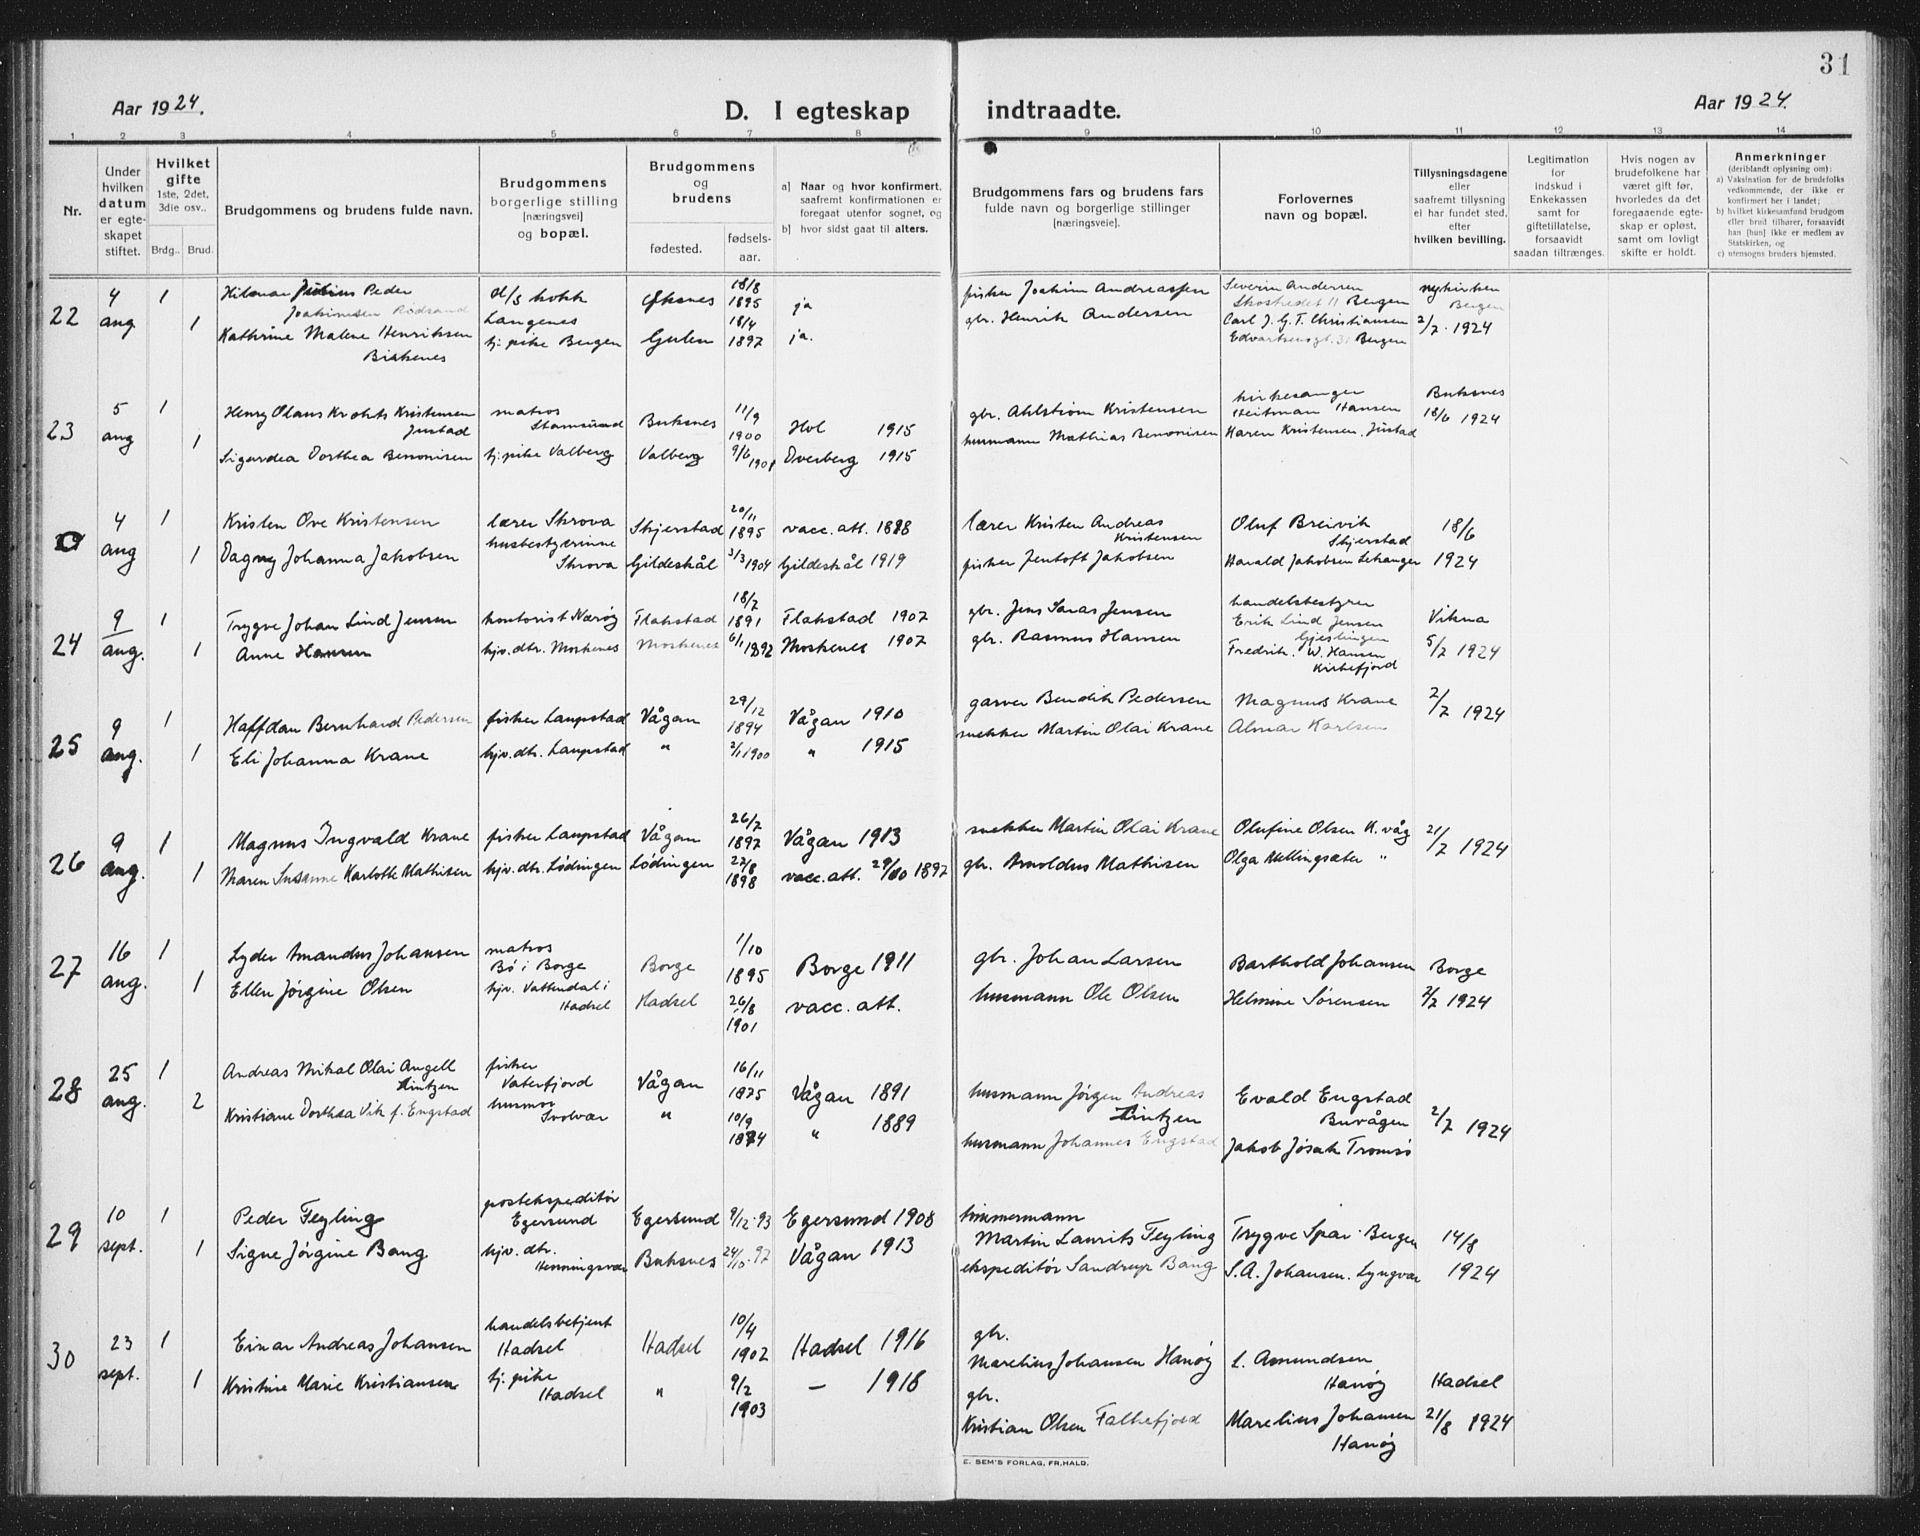 31
Aar 1924.
D. I egteskap indtraadte.
Aar 1924.
1 2 3 4 5 6 7 8 9 10 11 12 13 14
Nr.
Under hvilken datum er egteskapet stiftet.
Hvilket gifte
1ste, 2det, 3die osv..
Brdg.. Brud.
Brudgommens og brudens fulde navn.
Brudgommens borgerlige stilling [næringsvei] og bopæl.
Brudgommens og brudens
fødested.
fødselsaar.
a] Naar og hvor konfirmert, saafremt konfirmationen er foregaat utenfor sognet, og
b] hvor sidst gaat til alters.
Brudgommens fars og brudens fars fulde navn og borgerlige stillinger [næringsveie].
Forlovernes navn og bopæl.
Tillysningsdagene eller saafremt tillysning ei har fundet sted, efter hvilken bevilling.
Legitimation for indskud i Enkekassen samt for giftetillatelse, forsaavidt saadan tiltrænges.
Hvis nogen av brudefolkene har været gift før, hvorledes da det foregaaende egteskap er opløst, samt om lovligt skifte er holdt.
Anmerkninger
(deriblandt oplysning om):
a) Vaksination for de brudefolks vedkommende, der ikke er konfirmert her i landet;
b) hvilket kirkesamfund brudgom eller brud tilhører, forsaavidt han [hun] ikke er medlem av Statskirken, og
c) utensogns bruders hjemsted.
22 4 aug 1 Hilmar Julius Peder Joakimsen Rødsand d/s kokk Langenes Øksnes 18/8 1895 ja fisker Joakim Andreassen Severin Andersen Skostredet 11 Bergen nykirken Bergen
1 Kathrine Malene Henriksen Birkenes tj. pike Bergen Gulen 18/4 1897 ja. gbr. Henrik Andersen Carl J. G. T. Christiansen Edvardsensgt. 31 Bergen 2/7. 1924
23 5 aug 1 Henry Olaus Krohts Kristensen Justad matros Stamsund Buksnes 11/9 1900 Hol 1915 gbr. Ahlstrøm Kristensen kirkesanger Heitman Hansen Buksnes 18/6 1924
1 Sigurdea Dorthea Benonisen tj. pike Valberg Valberg 9/6 1901 Overberg 1915 husmann Mathias Benonisen Karen Kristensen, Justad
4 aug 1 Kristen Ove Kristensen lærer Skrova Skjerstad 20/11 1895 vacc. att. 1898 lærer Kristen Andreas Kristensen Oluf Breivik Skjerstad 18/6
1 Dagny Johanna Jakobsen husbestyrerinne Skrova Gildeskål 3/3 1904 Gildeskål 1919 fisker Jentoft Jakobsen Harald Jakobsen Lekanger 1924
24 9 aug. 1 Trygve Johan Lind Jensen kontorist Nærøy Flakstad 18/7 1891 Flakstad 1907 gbr. Jens Saras Jensen handelsbestyrer Erik Lind Jensen Gjeslingen Vikna
1 Anne Hansen hjv. dtr. Moskenes Moskenes 6/1 1892 Moskenes 1907 gbr. Rasmus Hansen Fredrik. W. Hansen Kirkefjord 5/7 1924
25 9 aug. 1 Halfdan Bernhard Pedersen fisker Laupstad Vågan 29/12 1894 Vågan 1910 garver Bendik Pedersen Magnus Krane 2/7 1924
1 Eli Johanna Krane hjv. dtr. Laupstad " 2/1 1900 " 1915 snekker Martin Olai Krane Almar Karlsen
26 9 aug. 1 Magnus Ingvald Krane fisker Laupstad Vågan 26/7 1897 Vågan 1913 snekker Martin Olai Krane Olufine Olsen K.våg 21/7 1924
1 Maren Susanne Karlotte Mathisen hjv. dtr. Lødingen Lødingen 27/8 1898 vacc. att. 29/10 1897 gbr. Arnoldus Mathisen Olga Mellingsæter "
27 16 aug. 1 Lyder Amandus Johansen matros Bø i Borge Borge 1/10 1895 Borge 1911 gbr. Johan Larsen Barthold Johansen Borge
1 Ellen Jørgine Olsen hjv. Vattendal i Hadsel Hadsel 26/8 1901 vacc. att. husmann Ole Olsen Helmine Sørensen 2/7 1924
28 25 aug. 1 Andreas Mikal Olai Angell Lintzen fisker Vaterfjord Vågan 16/11 1875 Vågan 1891 husmann Jørgen Andreas Lintzen Evald Engstad Buvågen 2/7 1924
2 Kristiane Dorthea Vik f. Engstad husmor Svolvær " 10/9 1874 " 1889 husmann Johannes Engstad Jakob Jøsok Tromsø
29 10 sept. 1 Peder Feyling postekspeditør Egersund Egersund 9/12-93 Egersund 1908 timmermann Martin Laurits Feyling Trygve Spar Bergen 14/8
1 Signe Jørgine Bang hjv. dtr. Henningsvær Buksnes 24/10-97 Vågan 1913 ekspeditør Sandrup Bang S. A. Johansen. Lyngvær 1924
30 23 sept. 1 Einar Andreas Johansen handelsbetjent Hadsel Hadsel 10/4 1902 Hadsel 1916 gbr. Marelius Johansen Hanøy L. Amundsen Hanøy Hadsel
1 Kristine Marie Kristiansen tj. pike Hadsel " 9/2 1903 — 1918 gbr. Kristian Olsen Falkefjord Marelius Johansen Hanøy 21/8 1924
E. SEM'S FORLAG, FR.HALD.